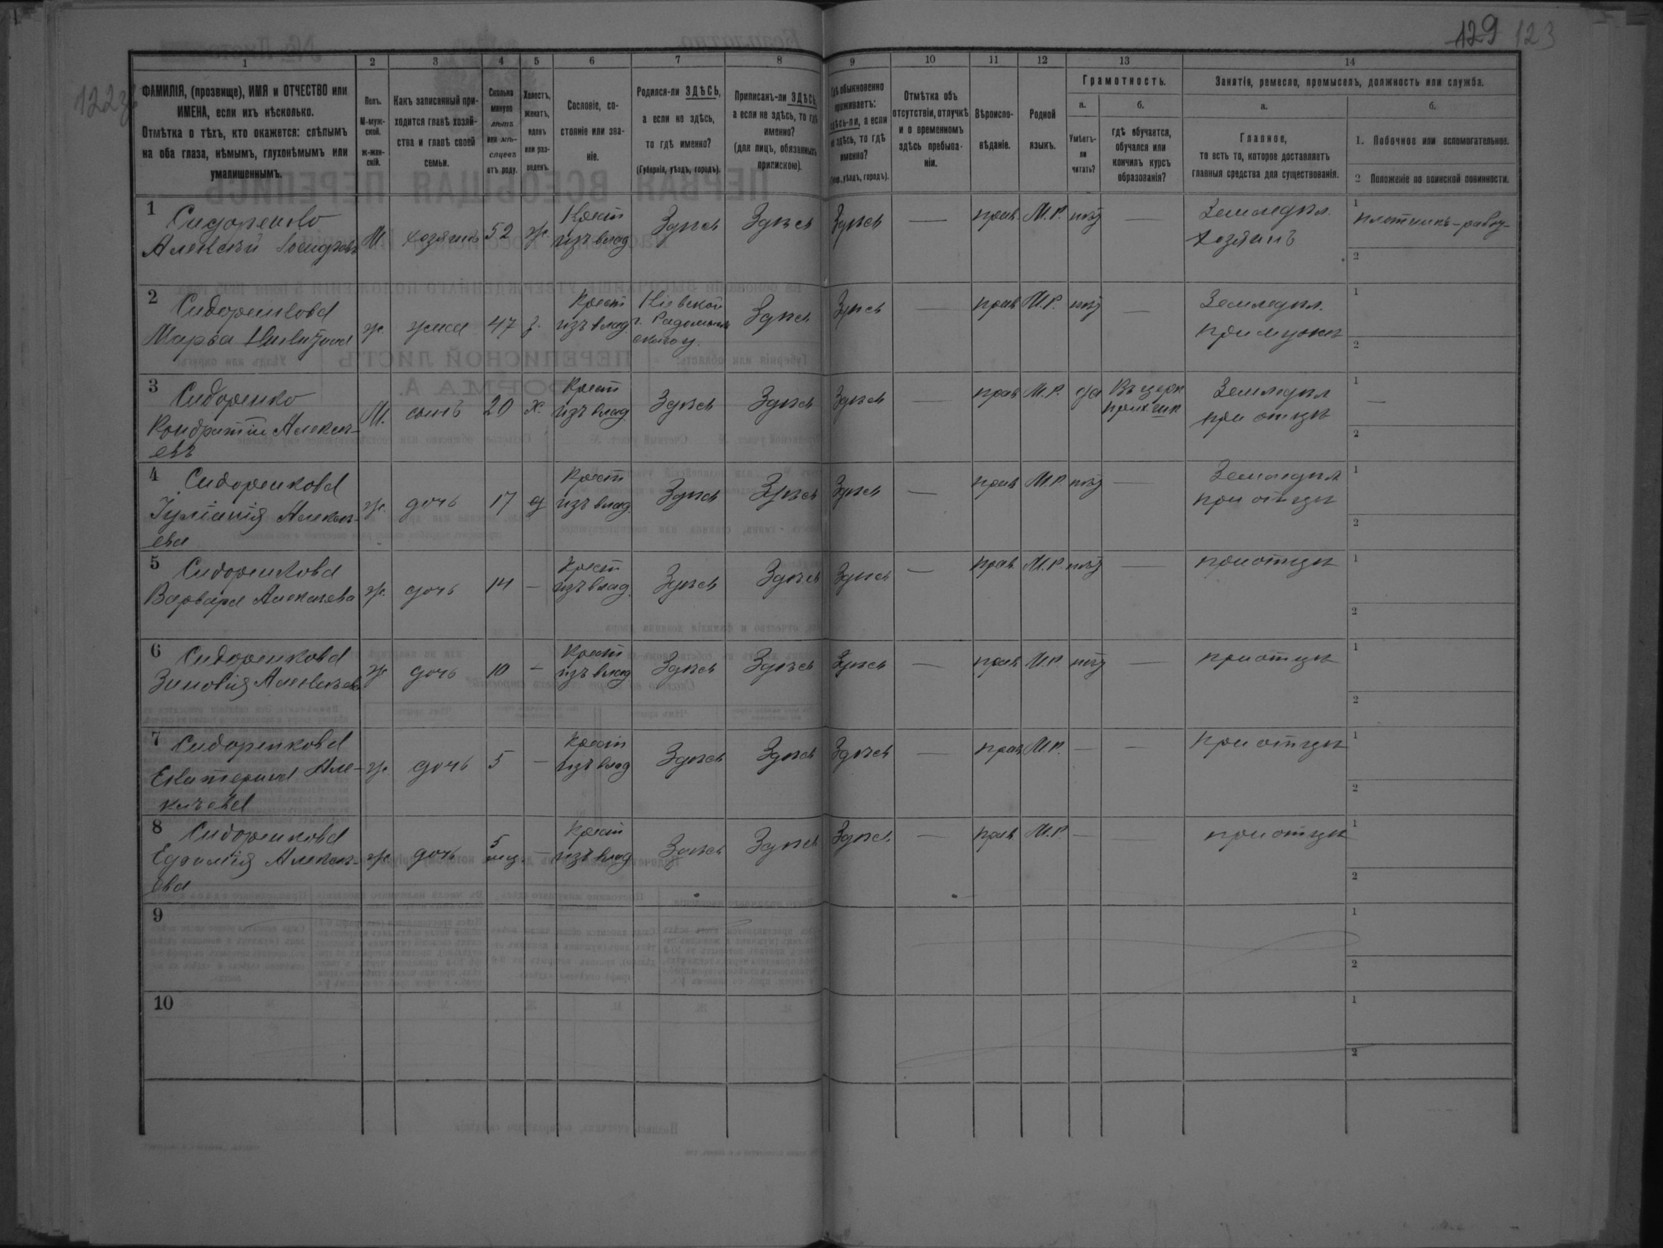 129 123
1
2
3
4
5
6
7
8
9
10
11
12
13
14
ФАМИЛІЯ, (прозвище), ИМЯ и ОТЧЕСТВО или
ИМЕНА, если ихъ нѣсколько.
Отмѣтка о тѣхъ, кто окажется: слѣпымъ
на оба глаза, нѣмымъ, глухонѣмымъ или
умалишеннымъ.
Полъ.
М-муж-
ской.
ж-жен-
скій.
Какъ записанный при-
ходится главѣ хозяй-
ства и главѣ своей
семьи.
Сколько
минуло
лѣтъ
отъ роду.
Холостъ,
женатъ,
вдовъ
или раз-
веденъ.
Сословіе, со-
стояніе или зва-
ніе.
Родился-ли ЗДѢСЬ,
а если не здѣсь,
то гдѣ именно?
(Губернія, уѣздъ, городъ).
Приписанъ-ли ЗДѢСЬ,
а если не здѣсь, то гдѣ
именно?
(для лицъ, обязанныхъ
припискою).
Гдѣ обыкновенно
проживаетъ:
здѣсь-ли, а если
не здѣсь, то гдѣ
именно?
(Губ., уѣздъ, городъ).
Отмѣтка объ
отсутствіи, отлучкѣ
и о временномъ
здѣсь пребыва-
ніи.
Вѣроиспо-
вѣданіе.
Родной
языкъ.
Грамотность.
а.
Умѣетъ-
ли
читать?
б.
гдѣ обучается,
обучался или
кончилъ курсъ
образованія?
Занятія, ремесло, промыселъ, должность или служба.
а.
Главное,
то есть то, которое доставляетъ
главныя средства для существованія.
б.
1. Побочное или вспомогательное.
2 Положеніе по воинской повинности.
1 Сидоренко
Алексѣй М. хозяинъ 52 ж. Крест. изъ влад. Здѣсь Здѣсь Здѣсь — прав М.Р. нѣт — Земледѣл. хозяинъ
1 плотникъ-
2
2 Сидоренкова
Марѳа ж. жена 47 з. Крест. изъ влад. Кіевской г. Здѣсь Здѣсь прав М.Р. нѣт — Земледѣл. при мужѣ
1
2
3 Сидоренко
Кондратій Алексѣ-
евъ М. сынъ 20 х. Крест. изъ влад. Здѣсь Здѣсь Здѣсь — прав М.Р. да Въ церк приx шк Земледѣл при отцѣ
1 —
2
4 Сидоренкова
Іуліанія Алексѣ-
ева ж. дочь 17 д Крест изъ влад. Здѣсь Здѣсь Здѣсь — прав М.Р. нѣт — Земледѣл при отцѣ
1
2
5 Сидоренкова
Варвара Алексѣева ж. дочь 14 — Крест изъ влад. Здѣсь Здѣсь Здѣсь — прав М.Р. нѣт — при отцѣ
1
2
6 Сидоренкова
Зиновія Алексѣева ж. дочь 10 — Крест изъ влад Здѣсь Здѣсь Здѣсь — прав М.Р. нѣт — при отцѣ
1
2
7 Сидоренкова
Екатерина Але-
ксѣева ж. дочь 5 — Крест изъ влад Здѣсь Здѣсь Здѣсь — прав М.Р. — — при отцѣ
1
2
8 Сидоренкова
Алексѣ-
ева ж. дочь 5 мѣс. — Крест изъ влад Здѣсь Здѣсь Здѣсь — прав М.Р. — — при отцѣ
1
2
9
1
2
10
1
2